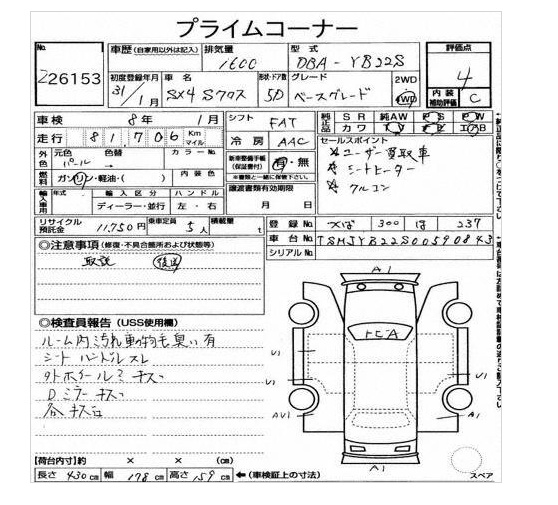 プライムコーナー
No. 226153
車歴 (自家用以外は記入) 排気量 1600 型式 DBA-YB22S 評価点 4
初度登録年月 31/1月 車名 SX4 Sクロス 形状・ドア数 5D グレード ベースグレード 2WD 4WD 内装補助評価 C
車検 8年 1月 シフト FAT 純正 SR 純AW PS PW
走行 81,706 Km マイル 冷房 AAC 装備 カワ TV エアB
外色 元色 パール 色替 → カラーNo. 新車整備手帳(保証書付) 有・無 セールスポイント
※書類と一緒に保管して下さい
燃料 ガソリン・軽油・( ) 内装色 譲渡書類有効期限 月 日
※ユーザー買取車
※シートヒーター
※クルコン
輸入車用 年式 輸入区分 ハンドル
ディーラー・並行 左・右
リサイクル預託金 11,750円 乗車定員 5人 積載量 t 登録No. つくば 300 ほ 237
車台No. TSMJYB22S00590843
シリアルNo.
◎注意事項 (修復・不具合箇所および状態等)
取説 後送
A1
トヒA
◎検査員報告 (USS使用欄)
ルーム内汚れ動物毛臭い有
シート ハンドルスレ
外ホイールミキズ
Dミラーキズ
各キズ凹
U1
U1
U1
AU1
A1
A1
スペア
【荷台内寸】約 × × (cm)
長さ 430cm 幅 178cm 高さ 159cm ←(車検証上の寸法)